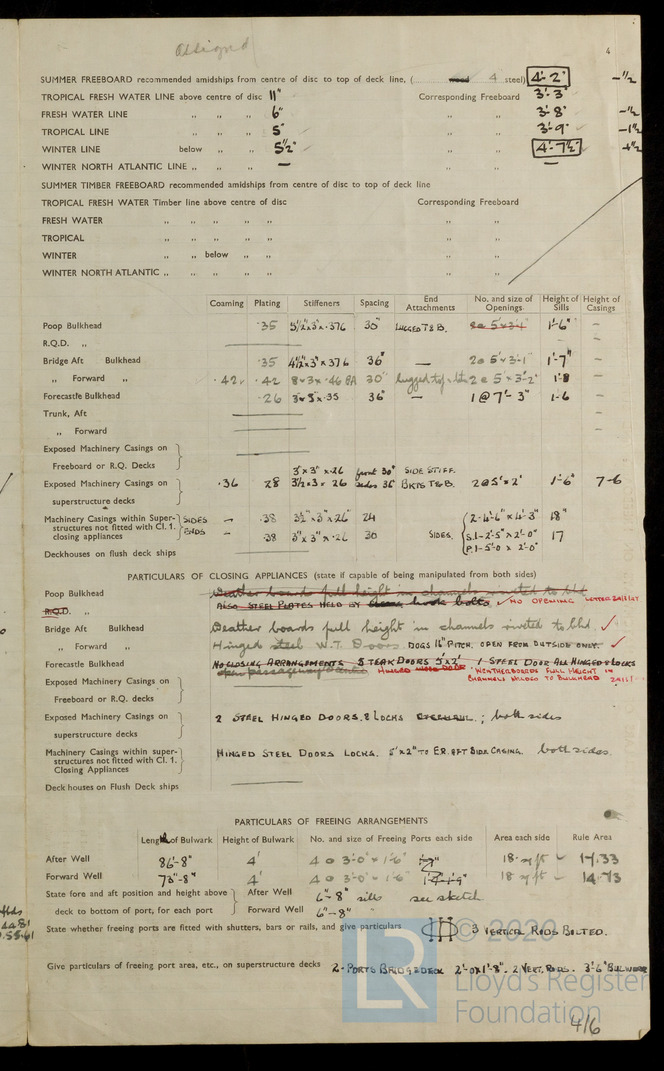 assigned
4
SUMMER FREEBOARD recommended amidships from centre of disc to top of deck line. (........ wood 4 steel) 4'-2" -½
TROPICAL FRESH WATER LINE above centre of disc 11" Corresponding Freeboard 3'-3"
FRESH WATER LINE ,, ,, ,, 6" ,, ,, 3'-8" -½
TROPICAL LINE ,, ,, ,, 5" ,, ,, 3'-9"
WINTER LINE below ,, ,, 5½" ,, ,, 4'-7½"
WINTER NORTH ATLANTIC LINE ,, ,, ,, — ,, ,, —
SUMMER TIMBER FREEBOARD recommended amidships from centre of disc to top of deck line
TROPICAL FRESH WATER Timber line above centre of disc Corresponding Freeboard
FRESH WATER ,, ,, ,, ,, ,,
TROPICAL ,, ,, ,, ,, ,,
WINTER ,, below ,, ,, ,, ,,
WINTER NORTH ATLANTIC ,, ,, ,, ,, ,, ,,
Coaming Plating Stiffeners Spacing End Attachments No. and size of Openings Height of Sills Height of Casings
Poop Bulkhead ·35 5½"x3"x·376 30" LUGGED T&B. 1'-6" —
R.Q.D. ,, —
Bridge Aft Bulkhead ·35 4½"x3"x·376 36" — 2@ 5'x3'-1" 1'-7" —
,, Forward ,, ·42 ·42 8x3x·46 BA 30" 2@ 5'x3'-2" 1'-8 —
Forecastle Bulkhead ·26 3x3x·35 36" — 1@7'-3" 1'-6 —
Trunk, Aft —
,, Forward —
Exposed Machinery Casings on
Freeboard or R.Q. Decks
3"x3"x·26 front 30" SIDE STIFF.
Exposed Machinery Casings on ·36 28 3½x3x·26 sides 36" BKTS T&B. 2@5'x2' 1'-6" 7-6
superstructure decks
Machinery Casings within Super- SIDES — ·38 3½"x3"x·26" 24 2-4'-6"x4'-3" 18"
structures not fitted with Cl. 1. ENDS — ·38 3"x3"x·26 30 SIDES. S.1-2'-5"x2'-0" 17
closing appliances P.1-5'-0x2'-0"
Deckhouses on flush deck ships
PARTICULARS OF CLOSING APPLIANCES (state if capable of being manipulated from both sides)
Poop Bulkhead Weather boards full height in channels riveted to bhd
R.Q.D. ,, ALSO STEEL PLATES HELD BY hook bolts ✓ NO OPENING
Bridge Aft Bulkhead Weather boards full height in channels riveted to bhd. ✓
,, Forward ,, Hinged steel W.T. Doors. DOGS 16" PITCH. OPEN FROM OUTSIDE ONLY. ✓
Forecastle Bulkhead NO CLOSING ARRANGEMENTS STEAK DOORS 5'x2' 1 STEEL DOOR ALL HINGED & LOCKS
Exposed Machinery Casings on HINGED WOOD DOOR. WEATHERBOARDS FULL HEIGHT IN
Freeboard or R.Q. decks CHANNELS WELDED TO BULKHEAD
Exposed Machinery Casings on 2 STEEL HINGED DOORS. & LOCKS ; both sides
superstructure decks
Machinery Casings within super- HINGED STEEL DOORS LOCKS. 5'x2" TO E.R. AFT SIDE CASING. both sides.
structures not fitted with Cl. 1.
Closing Appliances
Deck houses on Flush Deck ships
PARTICULARS OF FREEING ARRANGEMENTS
Length of Bulwark Height of Bulwark No. and size of Freeing Ports each side Area each side Rule Area
After Well 86'-8" 4' 4 @ 3'-0" x 1'-6" 18 sq ft 17.33
Forward Well 73"-8" 4' 4 @ 3'-0" x 1'-6" 18 sq ft 14.73
State fore and aft position and height above After Well 6"-8" sills see sketch
deck to bottom of port, for each port Forward Well 6"-8"
State whether freeing ports are fitted with shutters, bars or rails, and give particulars 3 VERTICAL RODS BOLTED.
Give particulars of freeing port area, etc., on superstructure decks 2-PORTS BRIDGE DECK 2'-0x1'-8". 2 VERT. RODS. 3'-6" BULWARK
© 2020
LR
Lloyd's Register
Foundation
4/6